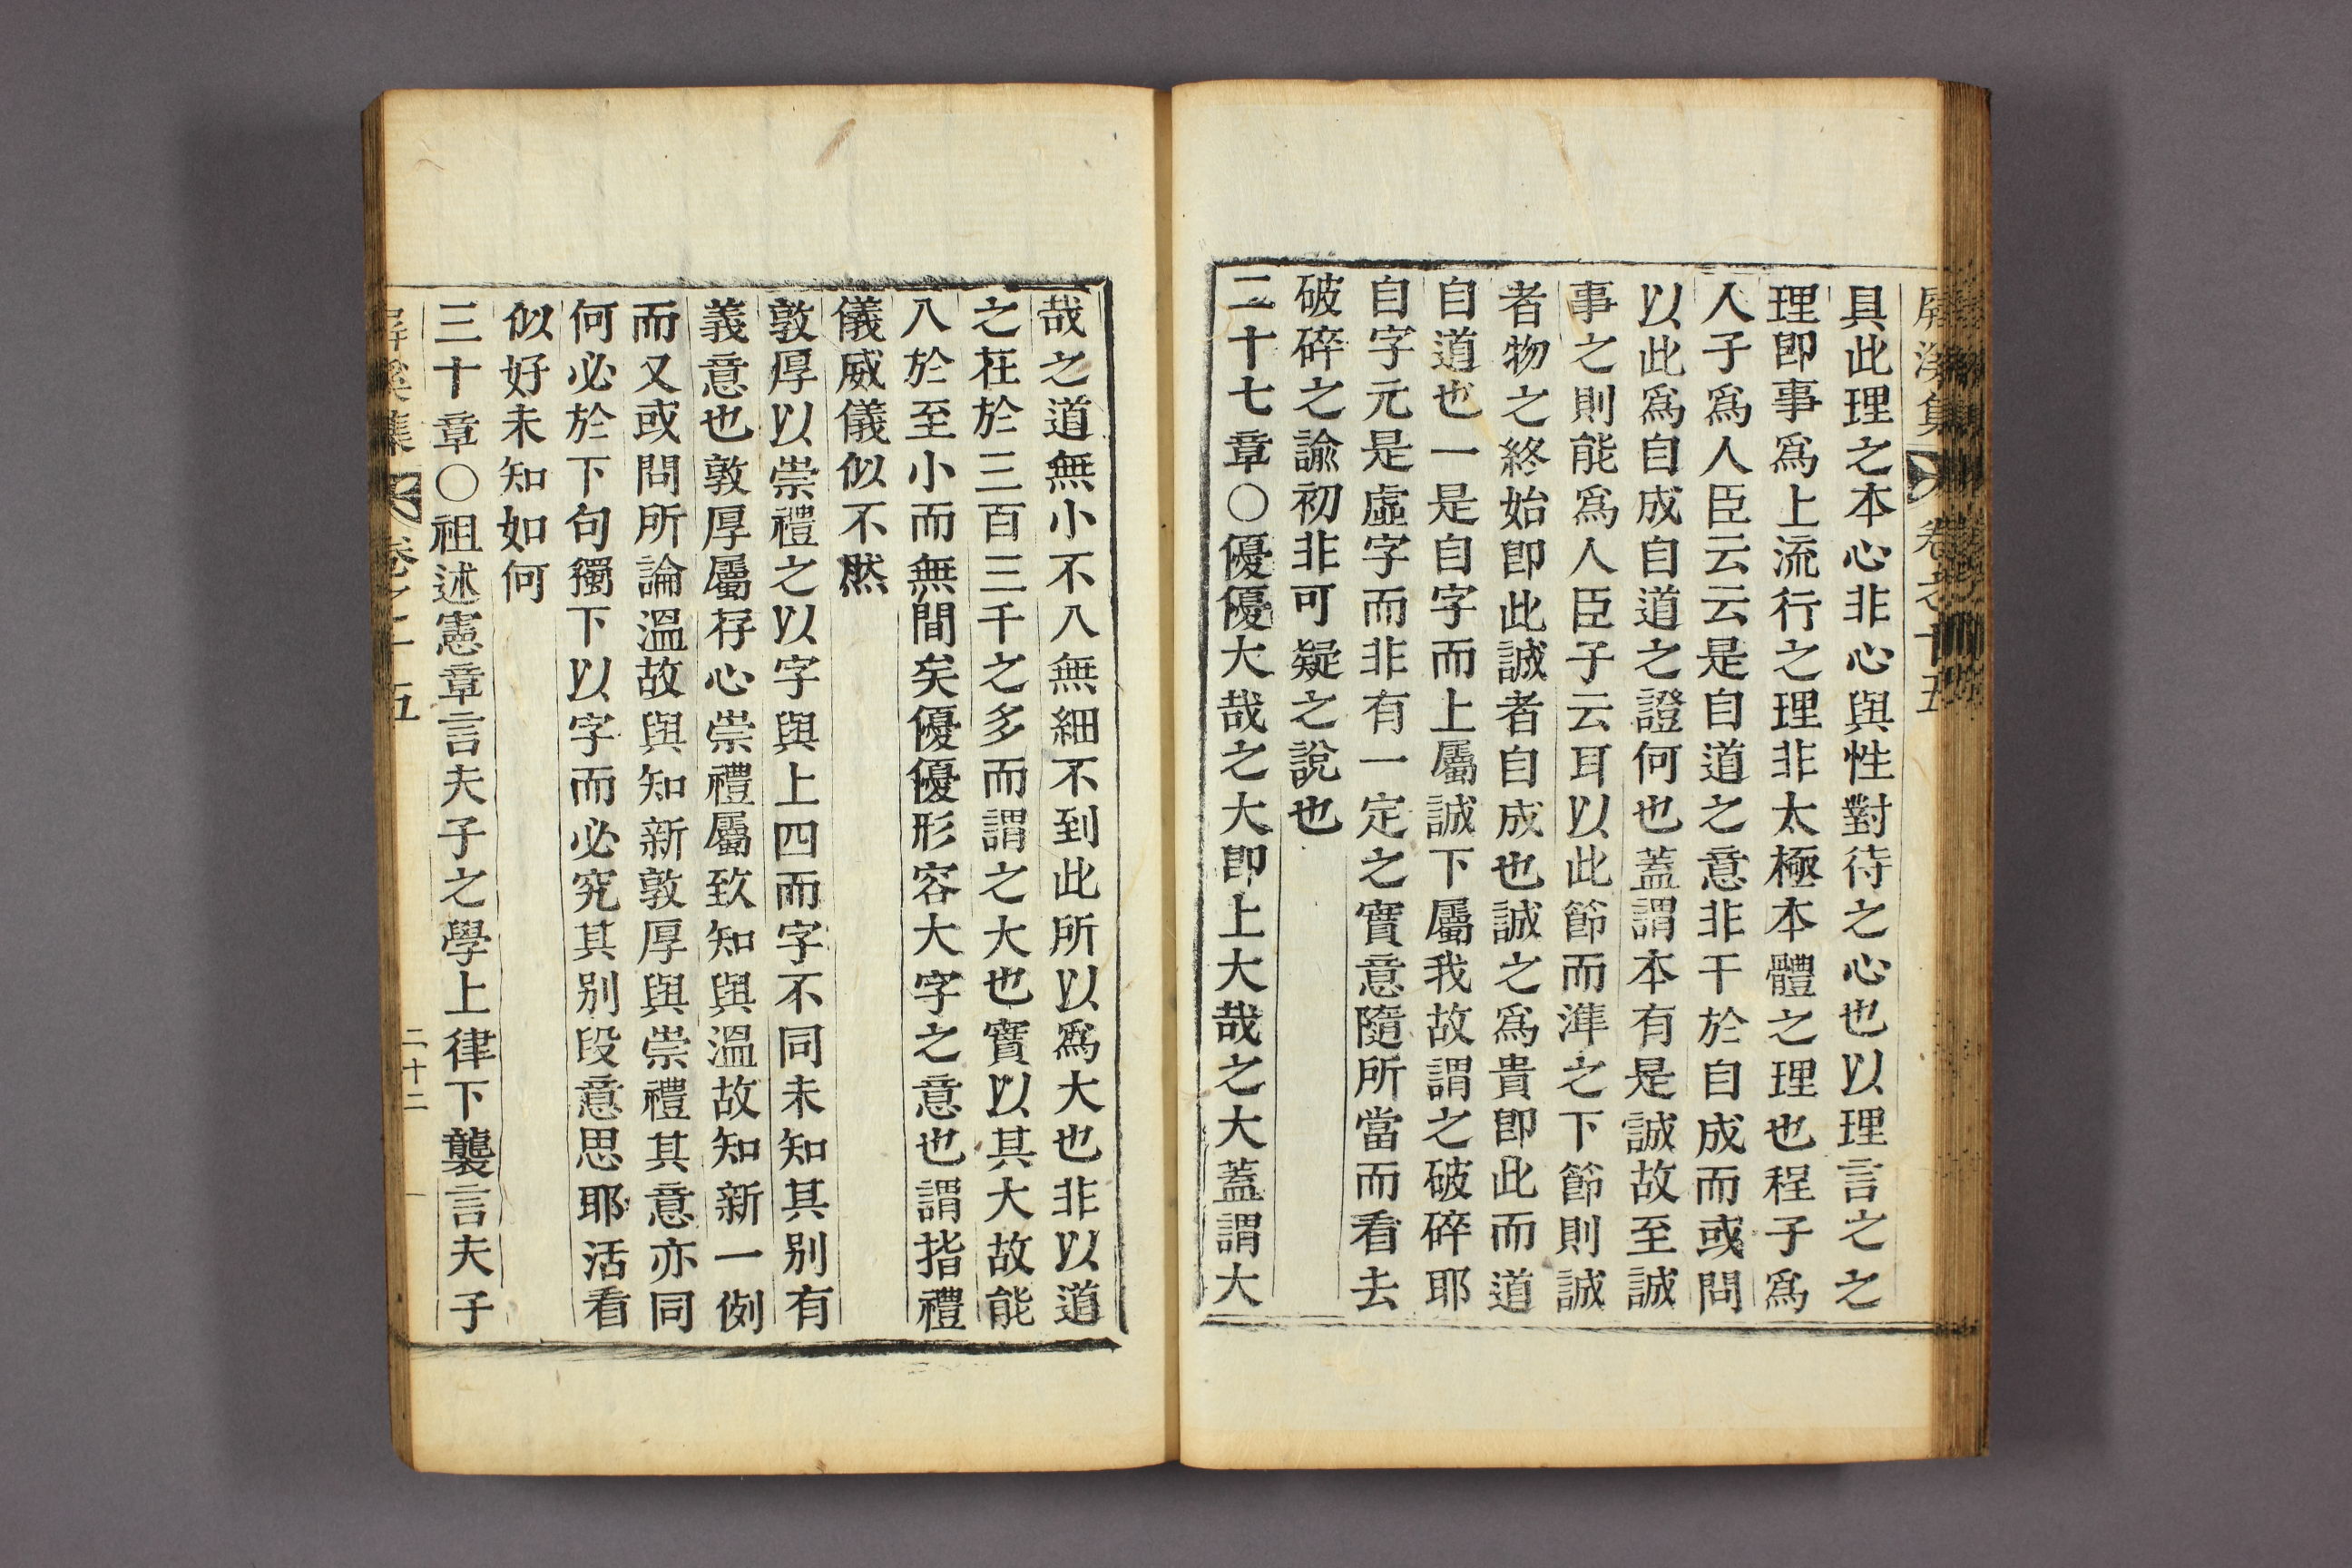 屏溪集 卷之二十五
具此理之本心非心與性對待之心也以理言之之
理即事爲上流行之理非太極本體之理也程子爲
人子爲人臣云云是自道之意非干於自成而或問
以此爲自成自道之證何也蓋謂本有是誠故至誠
事之則能爲人臣子云耳以此節而準之下節則誠
者物之終始即此誠者自成也誠之爲貴即此而道
自道也一是自字而上屬誠下屬我故謂之破碎耶
自字元是虛字而非有一定之實意隨所當而看去
破碎之諭初非可疑之說也
二十七章○優優大哉之大即上大哉之大蓋謂大
哉之道無小不入無細不到此所以爲大也非以道
之在於三百三千之多而謂之大也實以其大故能
入於至小而無間矣優優形容大字之意也謂指禮
儀威儀似不然
敦厚以崇禮之以字與上四而字不同未知其別有
義意也敦厚屬存心崇禮屬致知與溫故知新一例
而又或問所論溫故與知新敦厚與崇禮其意亦同
何必於下句獨下以字而必究其別段意思耶活看
似好未知如何
三十章○祖述憲章言夫子之學上律下襲言夫子
屏溪集 卷之二十五 二十二